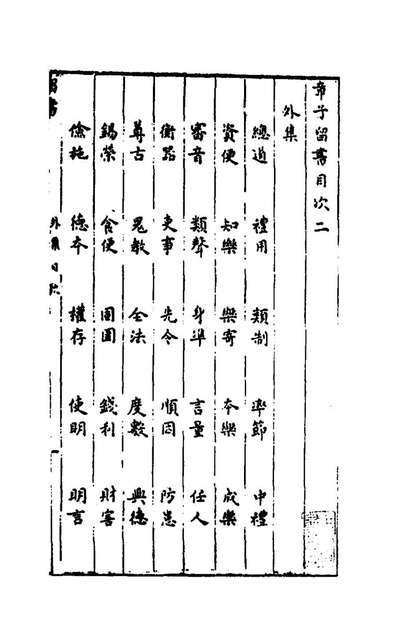 章子留書目次二
外集
總道 禮用 類制 率節 中禮
資便 知樂 樂寄 本樂 成樂
審音 類聲 身準 言量 任人
衡器 吏事 先令 順因 防患
尊古 晁敎 全法 度數 興德
錫榮 食便 囹圄 錢利 財害
儉施 德本 權存 使明 明言
留書 外集目次